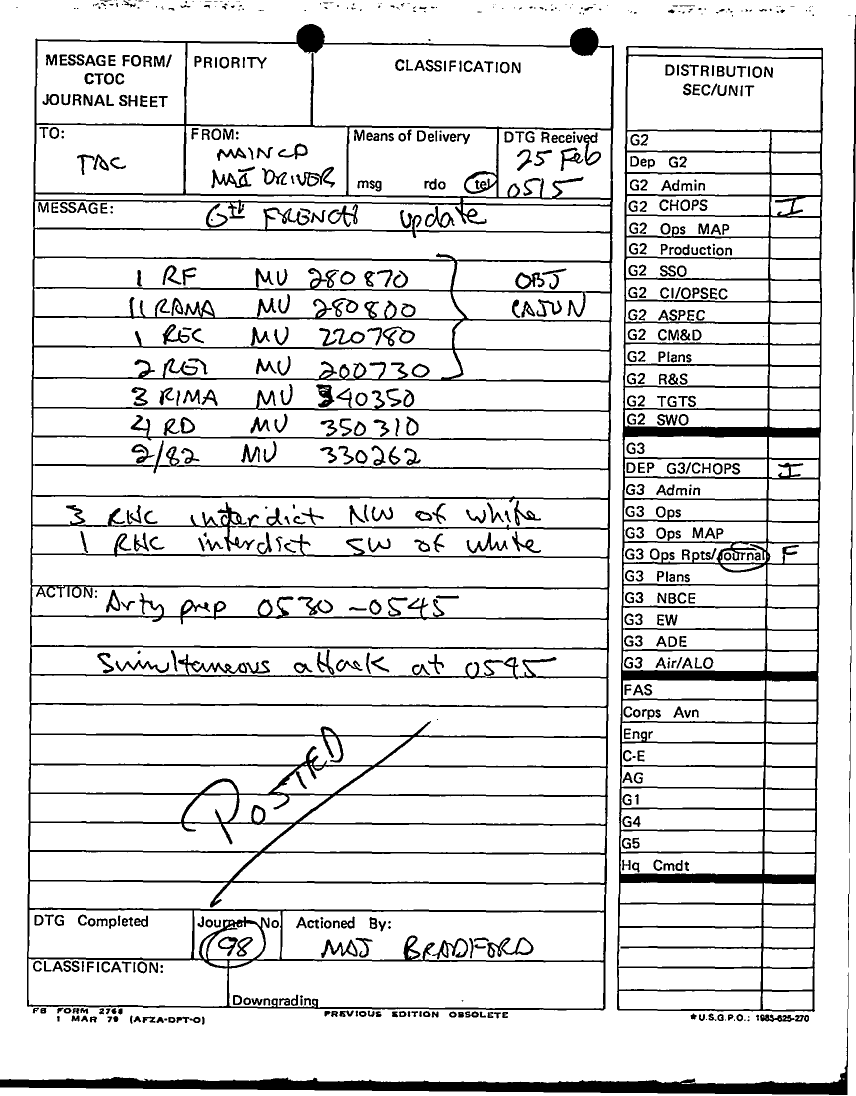 MESSAGE FORM/
CTOC
JOURNAL SHEET
PRIORITY
CLASSIFICATION
TO:
TAC
FROM:
MAIN CP
MAJ DRIVER
Means of Delivery
msg rdo tel
DTG Received
25 Feb
0515
MESSAGE:
6th FRENCH update
1 RF MU 280870
11 RAMA MU 280800
1 REC MU 220780
2 REI MU 200730
OBJ
CAJUN
3 RIMA MU 340350
4 RD MU 350310
2/82 MU 330262
3 RHC interdict NW of white
1 RHC interdict SW of white
ACTION:
Arty prep 0530 - 0545
Simultaneous attack at 0545
POSTED
DTG Completed
Journal No.
98
Actioned By:
MAJ BRADFORD
CLASSIFICATION:
Downgrading
FB FORM 2768
1 MAR 79 (AFZA-DPT-O)
PREVIOUS EDITION OBSOLETE
DISTRIBUTION
SEC/UNIT
G2
Dep G2
G2 Admin
G2 CHOPS I
G2 Ops MAP
G2 Production
G2 SSO
G2 CI/OPSEC
G2 ASPEC
G2 CM&D
G2 Plans
G2 R&S
G2 TGTS
G2 SWO
G3
DEP G3/CHOPS I
G3 Admin
G3 Ops
G3 Ops MAP
G3 Ops Rpts/Journal F
G3 Plans
G3 NBCE
G3 EW
G3 ADE
G3 Air/ALO
FAS
Corps Avn
Engr
C-E
AG
G1
G4
G5
Hq Cmdt
★U.S.G.P.O.: 1983-625-270